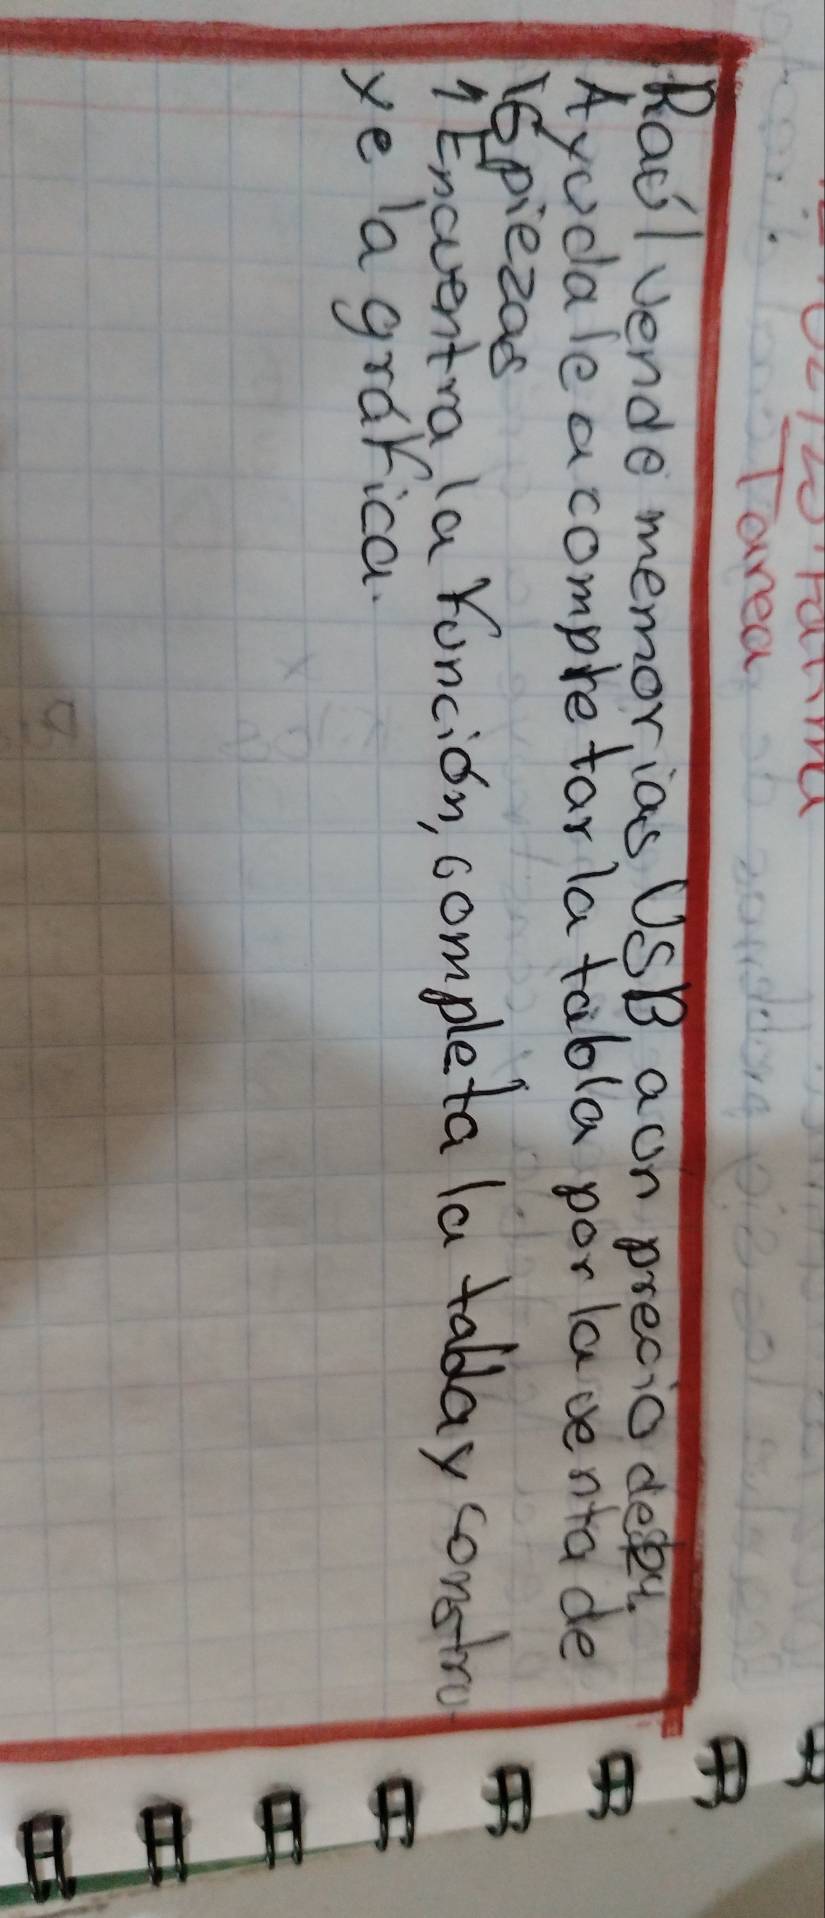 Tarea
Raúl vende memorias USB, a un precio de
Ayudale a completar la tabla por la venta de
16 piezas
1 Encuentra la función, completa la tabla y constru-
ye la gráfica.